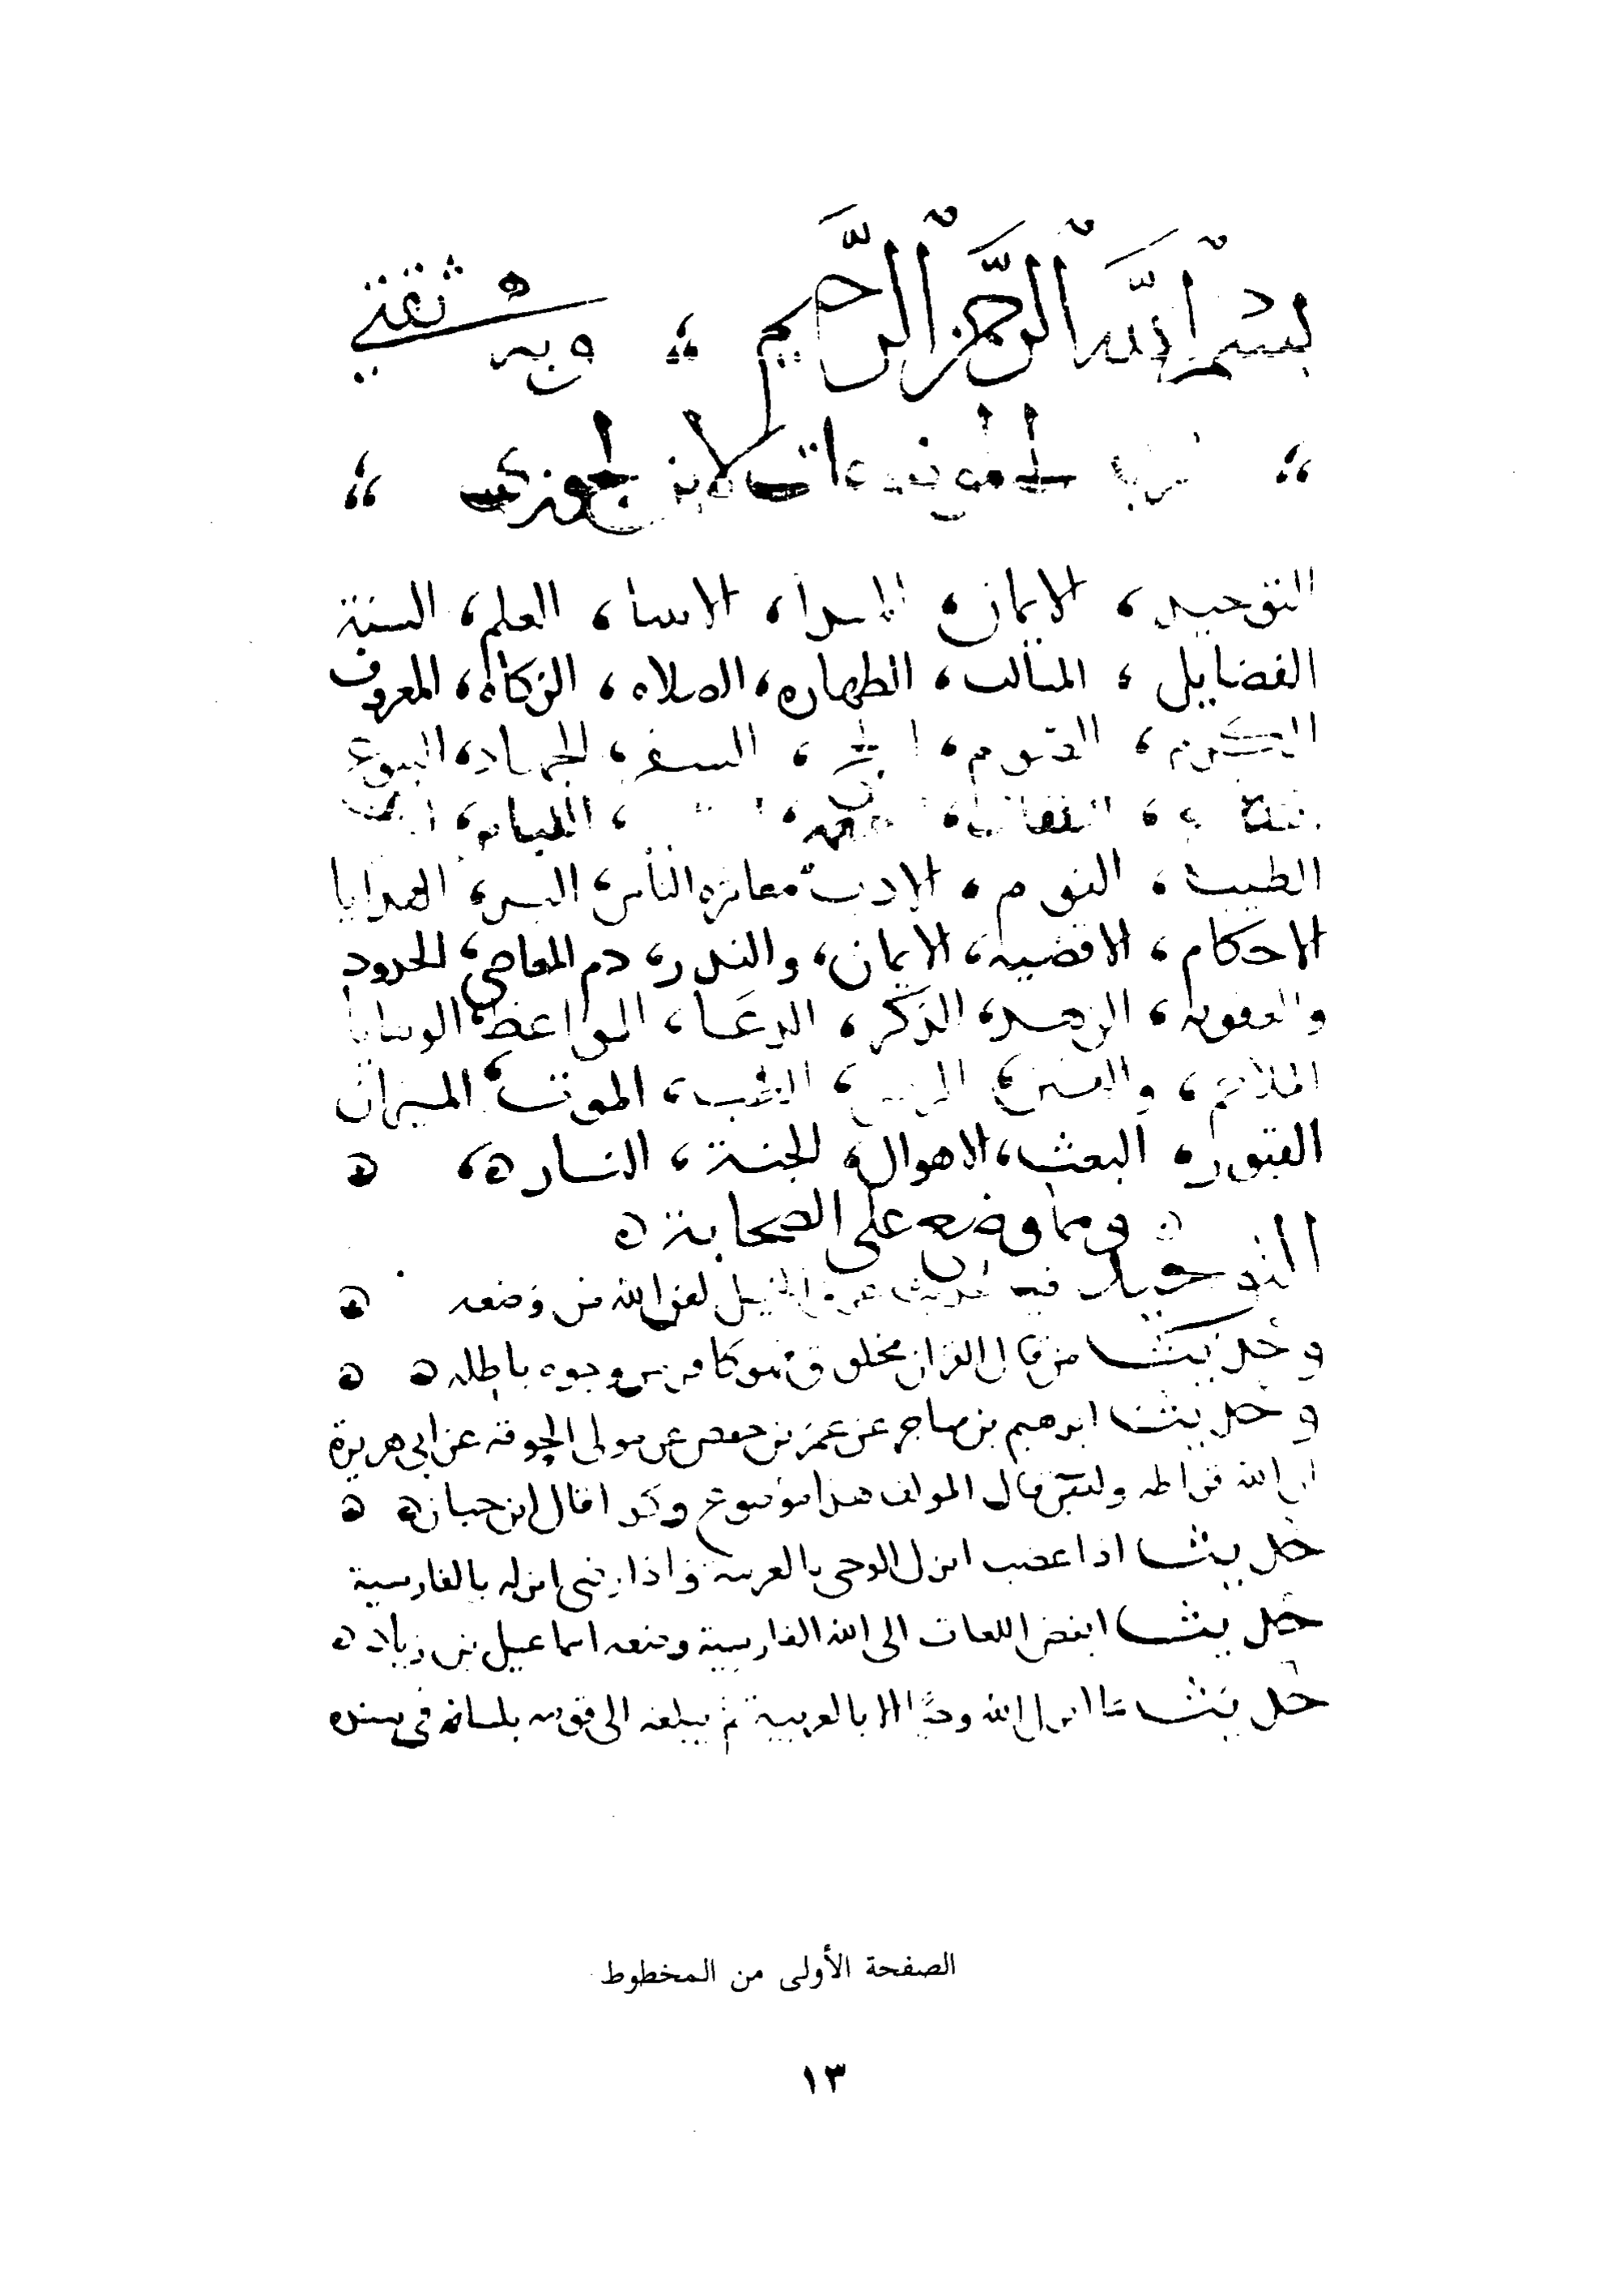 بسم الله الرحمن الرحيم ؛ وبه ثقتي
الموضوعات لابن الجوزي
التوحيد، الايمان، المبدا، الانبيا، العلم، السنة
الفضايل، المثالب، الطهاره، الصلاه، الزكاة، المعروف
الصوم، الحج، السفر، الجهاد، البيوع
النفقات
الطيب، النوم، الادب، معاشره الناس، البر، الهدايا
الاحكام، الاقضيه، الايمان، والنذر، ذم المعاصي، الحدود
والعقوبه، الزهد، الذكر، الدعا، المواعظ، الوصايا
الملاحم، والفتن، المرض، الموت، الميزان
القبور، البعث، الاهوال، الجنة، النار ه
ومما وضع على الصحابة ه
التوحيد فيه حديث عرق الخيل لعن الله من وضعه ه
وحديث من قال القران مخلوق فهو كافر من وجوه باطله ه ه
وحديث ابرهيم بن مهاجر عن عمر بن حفص عن مولى الحرقة عن ابي هريرة
ان الله قرا طه ويس قال المولف هذا موضوع وكذا قال ابن حبان ه ه
حديث اذا غضب انزل الوحي بالعربية واذا رضي انزله بالفارسية
حديث ابغض اللغات الى الله الفارسية وضعه اسماعيل بن زياد ه
حديث ما انزل الله وحيًا الا بالعربية ثم يبلغه الى قومه بلسانه في سنده
الصفحة الأولى من المخطوط
١٣